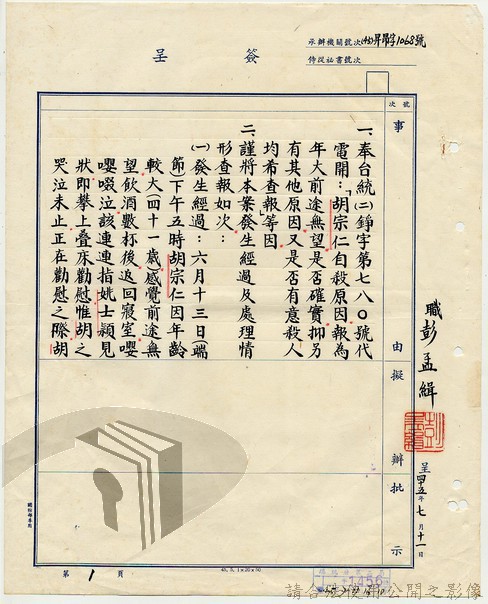 簽呈
承辦機關號次 (45)昇昂字1068號
侍從祕書號次
號次
事由
擬辦
批示
一、奉台統(二)錚字第七八〇號代
電開：「胡宗仁自殺原因報為
年大前途無望是否確實抑另
有其他原因又是否有意殺人
均希查報」等因
二、謹將本案發生經過及處理情
形查報如次：
(一)發生經過：六月十三日(端
節)下午五時胡宗仁因年齡
較大(四十一歲)感覺前途無
望飲酒數杯後返回寢室嚶
嚶啜泣該連連指姚士穎見
狀即攀上叠床勸慰惟胡之
哭泣未止正在勸慰之際胡
職彭孟緝
呈四五年七月十一日
第1頁
請合法使用公開之影像